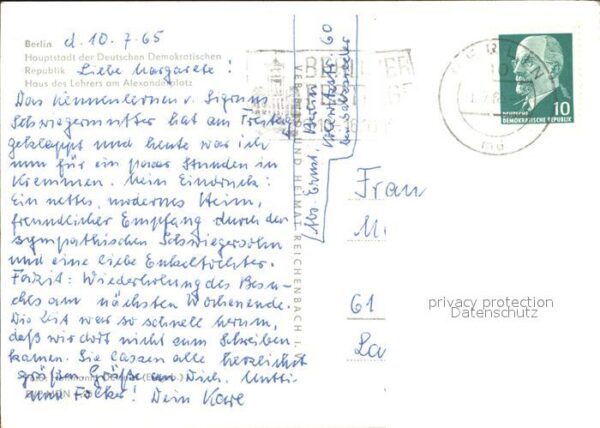 Berlin d. 10.7.65
Hauptstadt der Deutschen Demokratischen
Republik Liebe Margarete!
Haus des Lehrers am Alexanderplatz
Das Kennenlernen v. Sigruns
Schwiegermutter hat am Freitag
geklappt und heute war ich
nun für ein paar Stunden in
Kremmen. Mein Eindruck:
Ein nettes, modernes Heim,
freundlicher Empfang durch den
sympathischen Schwiegersohn
und eine liebe Enkeltochter.
Fazit: Wiederholung des Besu-
ches am nächsten Wochenende.
Die Zeit war so schnell herum,
daß wir dort nicht zum Schreiben
kamen. Sie lassen alle herzlichst
grüßen. Grüße an Dich, Mutti
und Folker! Dein Karl
VEB BILD UND HEIMAT REICHENBACH i.
Abs. Ernst, Berlin
60
bei
BERLINER
BERLIN
10
DEUTSCHE
DEMOKRATISCHE REPUBLIK
Frau
M
61
La
privacy protection
Datenschutz